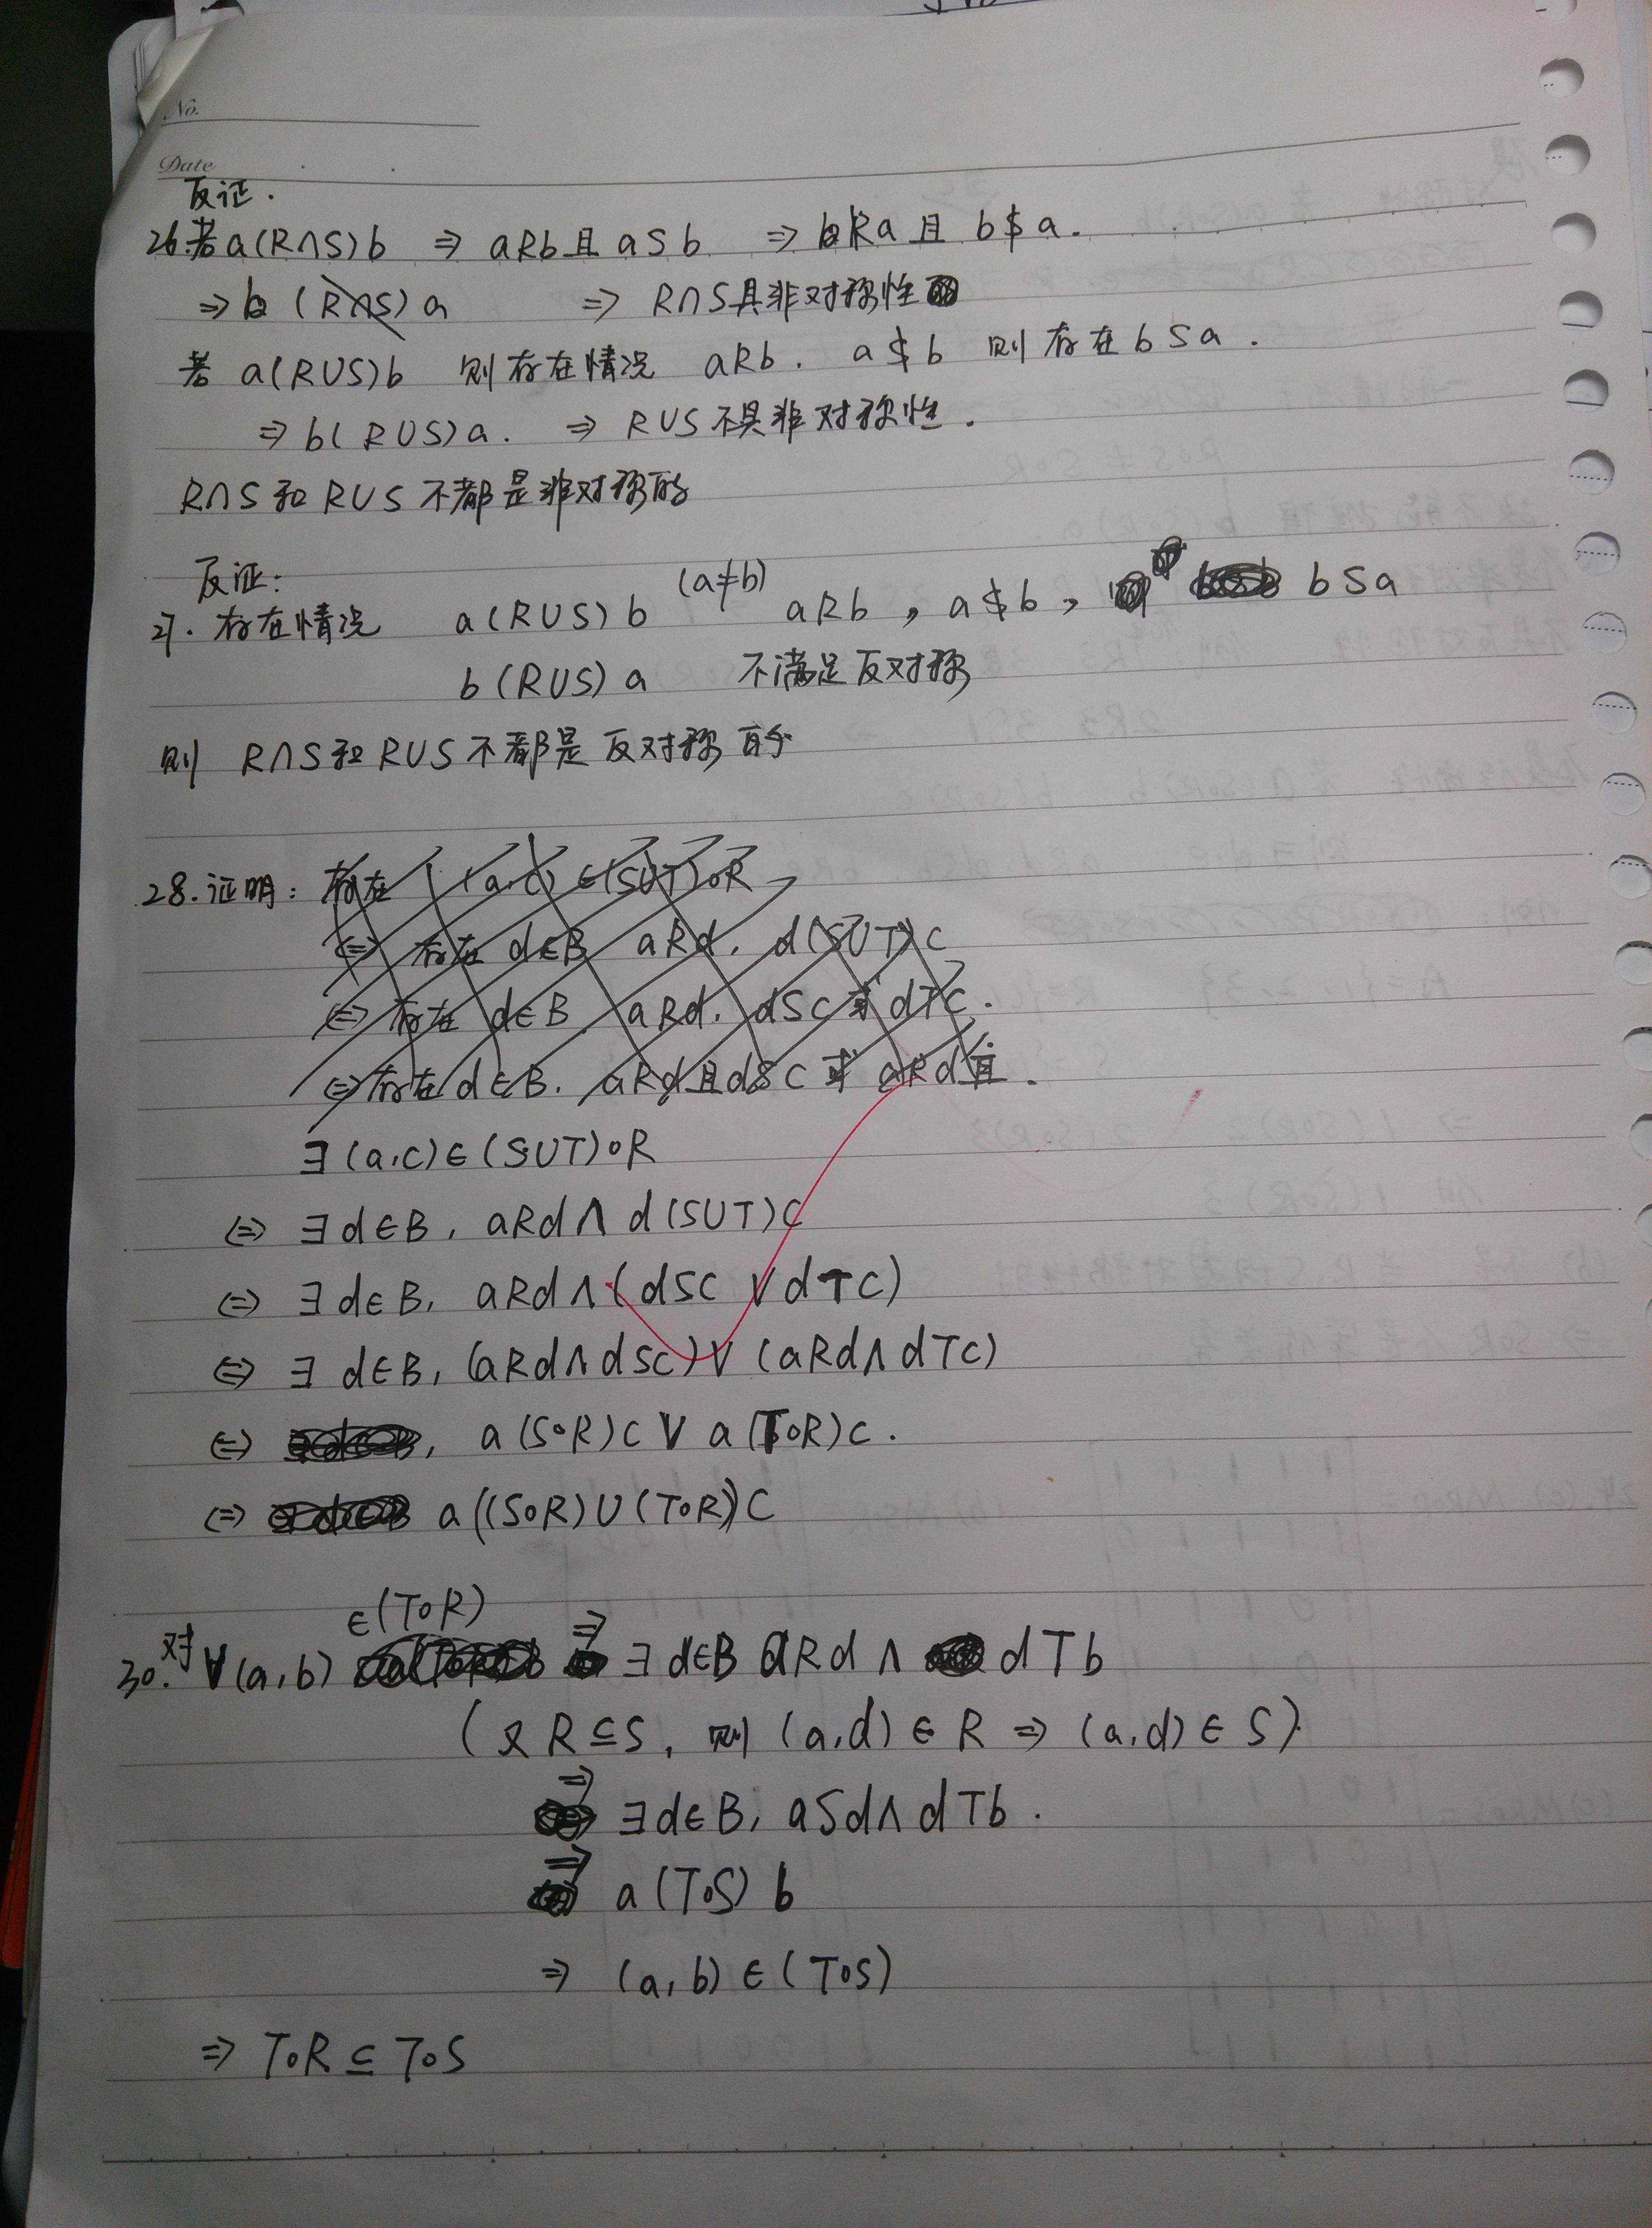 No.
Date
反证.
26.若 a(R∩S)b ⇒ aRb 且 aSb ⇒ bR̸a 且 bS̸a.
⇒ b (R∩S) a ⇒ R∩S具非对称性
若 a(R∪S)b 则存在情况 aRb. aS̸b 则存在 bSa.
⇒ b(R∪S)a. ⇒ R∪S不具非对称性.
R∩S和R∪S不都是非对称的
反证:
27. 存在情况 a(R∪S)b (a≠b) aRb, aS̸b, bSa
b(R∪S)a 不满足反对称
则 R∩S和R∪S不都是反对称的
28.证明: 存在 (a,c)∈(S∪T)∘R
⇔ 存在 d∈B aRd, d(S∪T)c
⇔ 存在 d∈B, aRd, dSc 或 dTc.
⇔ 存在 d∈B. aRd且dSc 或 aRd且.
∃(a,c)∈(S∪T)∘R
⇔ ∃d∈B, aRd∧d(S∪T)c
⇔ ∃d∈B, aRd∧(dSc∨dTc)
⇔ ∃d∈B, (aRd∧dSc)∨(aRd∧dTc)
⇔ , a(S∘R)c∨a(T∘R)c.
⇔ a((S∘R)∪(T∘R))c
30.对∀(a,b)∈(T∘R) ⇒ ∃d∈B aRd∧dTb
(又R⊆S, 则 (a,d)∈R⇒(a,d)∈S)
⇒ ∃d∈B, aSd∧dTb.
⇒ a(T∘S)b
⇒ (a,b)∈(T∘S)
⇒ T∘R⊆T∘S